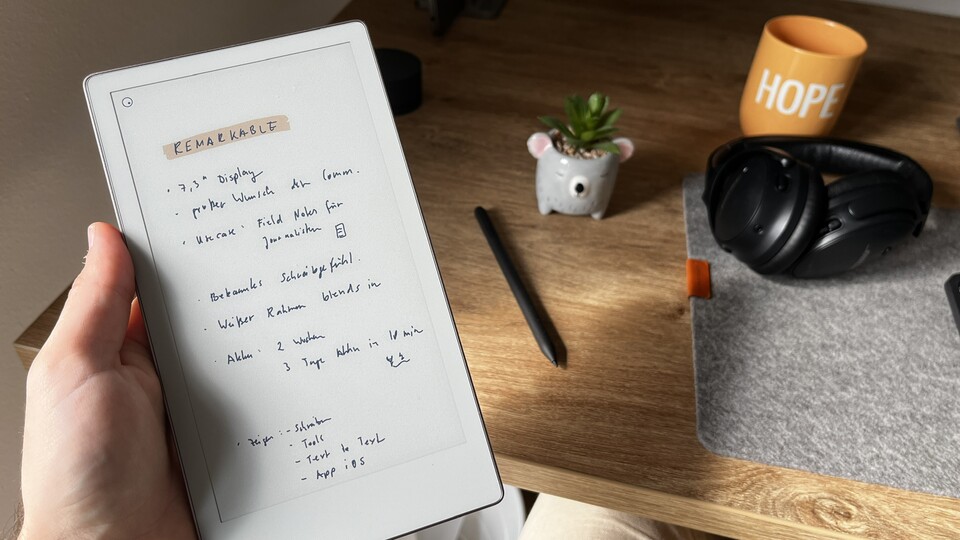 REMARKABLE
• 7,3" Display
• großer Wunsch der Comm.
• Usecase: Field Notes für
Journalisten
• Bekanntes Schreibgefühl.
• Weißer Rahmen blends in
• Akku: 2 Wochen
3 Tage in 10 min
• Zeigen: - Schreiben
- Tools
- Text to Text
- App iOS
HOPE